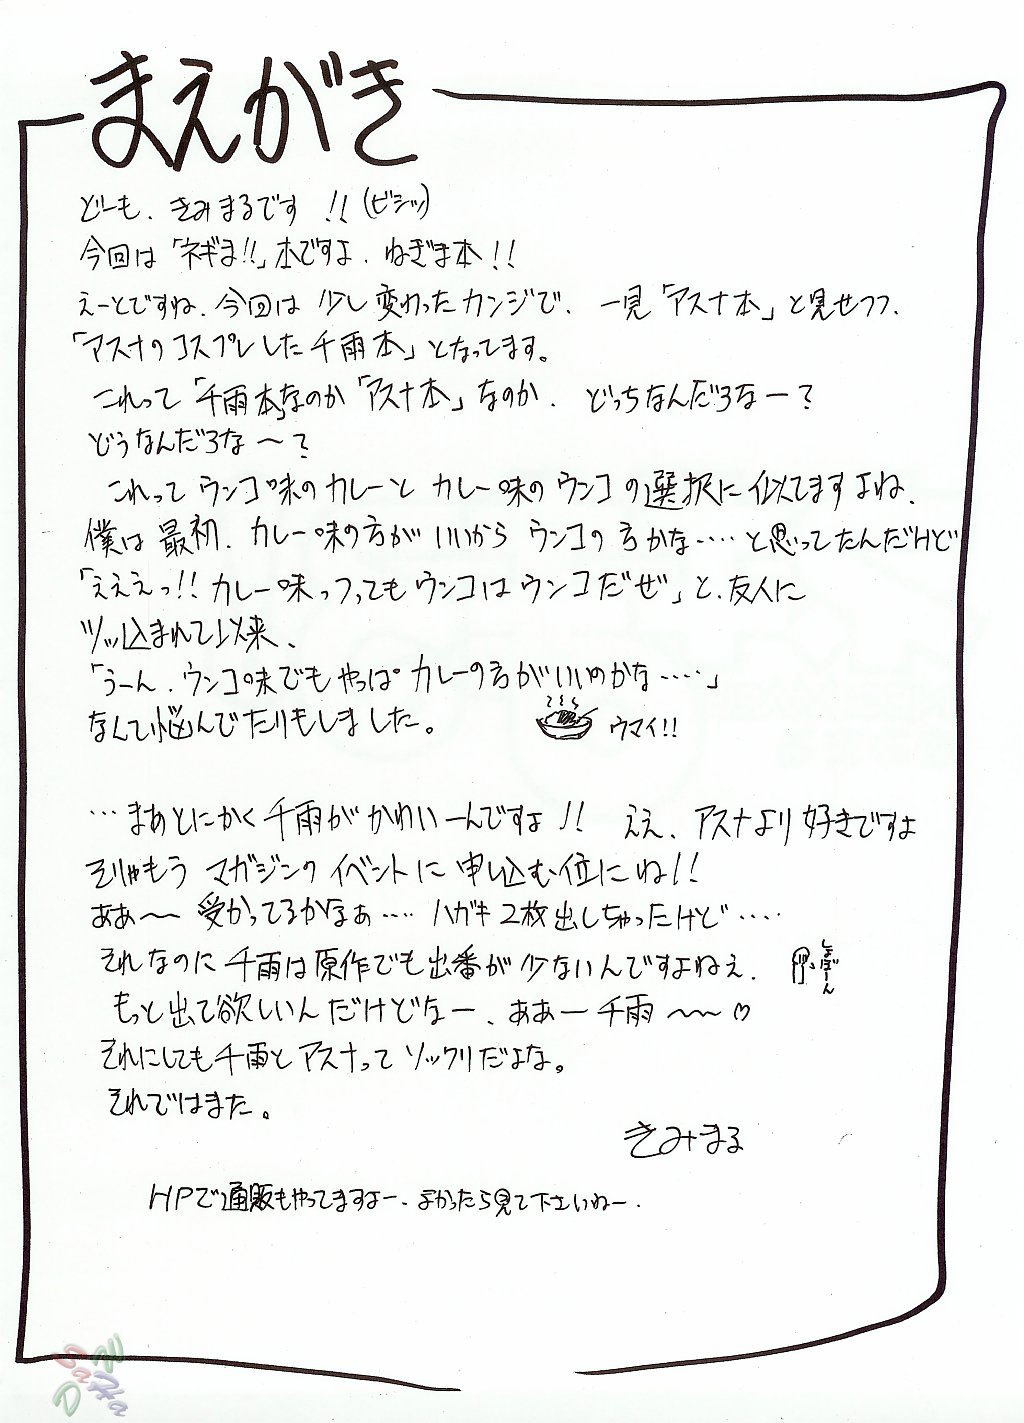 まえがき
どーも、きみまるです !! (ビシッ)
今回は「ネギま!!」本ですよ、ねぎま本!!
えーとですね、今回は 少し変わったカンジで、一見「アスナ本」と見せつつ、
「アスナのコスプレした千雨本」となってます。
これって「千雨本」なのか「アスナ本」なのか、どっちなんだろなー?
どうなんだろな～?
これって ウンコ味のカレーと カレー味の ウンコの選択に似てますよね、
僕は最初、カレー味の方が いいから ウンコの方かな‥‥と思ってたんだけど
「えええっ!! カレー味っつってもウンコはウンコだぜ」と、友人に
ツッ込まれて以来、
「うーん、ウンコ味でも やっぱ カレーの方がいいのかな‥‥」
なんて悩んでたりもしました。
ウマイ!!
…まあとにかく千雨が かわいーんですよ !! ええ、アスナより好きですよ
そりゃもう マガジンの イベントに 申し込む位にね!!
ああ～ 受かってるかなぁ‥‥ ハガキ2枚出しちゃったけど‥‥
それなのに 千雨は原作でも出番が 少ないんですよねぇ、
しょぼーん
もっと出て欲しいんだけどなー、ああー千雨～～♡
それにしても千雨と アスナって ソックリだよな。
それではまた。
きみまる
HPで通販もやってますよー、よかったら見て下さいねー、